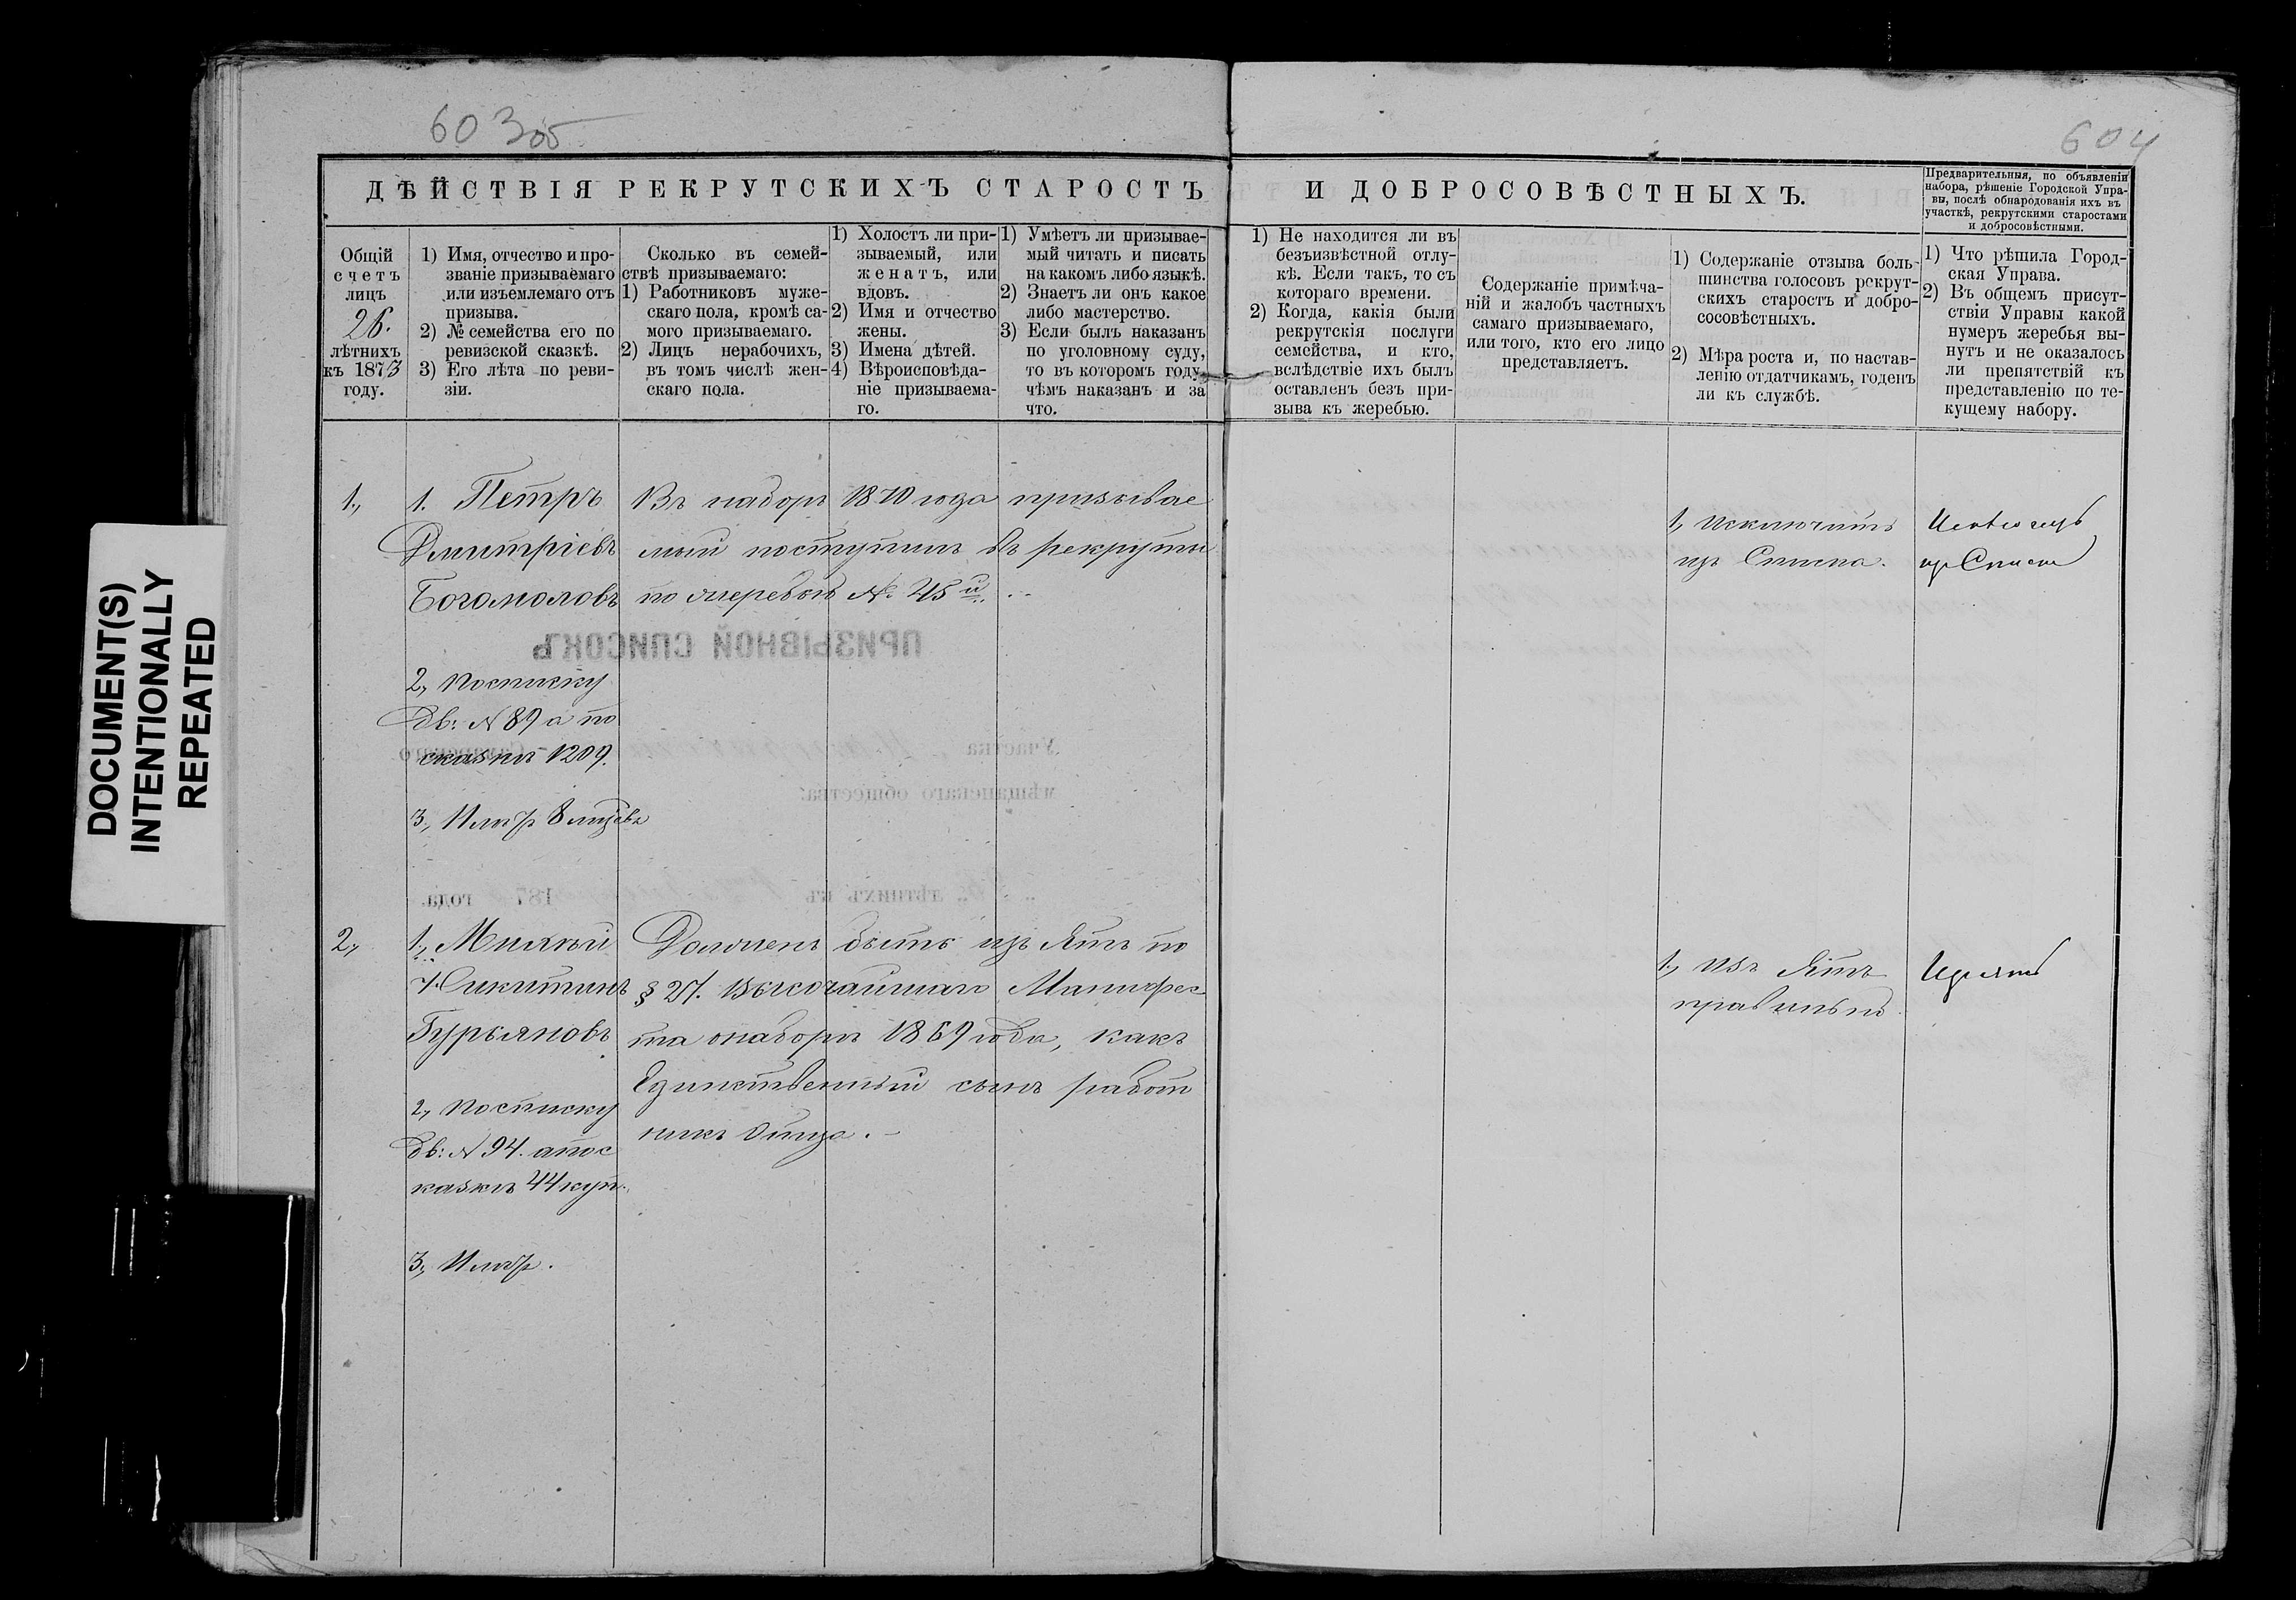 603об
604
ДѢЙСТВІЯ РЕКРУТСКИХЪ СТАРОСТЪ И ДОБРОСОВѢСТНЫХЪ.
Предварительныя, по объявленіи
набора, рѣшеніе Городской Упра-
вы, послѣ обнародованія ихъ въ
участкѣ, рекрутскими старостами
и добросовѣстными.
Общій
счетъ
лицъ
26.
лѣтнихъ
къ 1873
году.
1) Имя, отчество и про-
званіе призываемаго
или изъемлемаго отъ
призыва.
2) № семейства его по
ревизской сказкѣ.
3) Его лѣта по реви-
зіи.
Сколько въ семей-
ствѣ призываемаго:
1) Работниковъ муже-
скаго пола, кромѣ са-
мого призываемаго.
2) Лицъ нерабочихъ,
въ томъ числѣ жен-
скаго пола.
1) Холостъ ли при-
зываемый, или
женатъ, или
вдовъ.
2) Имя и отчество
жены.
3) Имена дѣтей.
4) Вѣроисповѣда-
ніе призываема-
го.
1) Умѣетъ ли призывае-
мый читать и писать
на какомъ либо языкѣ.
2) Знаетъ ли онъ какое
либо мастерство.
3) Если былъ наказанъ
по уголовному суду,
то въ которомъ году,
чѣмъ наказанъ и за
что.
1) Не находится ли въ
безъизвѣстной отлу-
кѣ. Если такъ, то съ
котораго времени.
2) Когда, какія были
рекрутскія послуги
семейства, и кто,
вслѣдствіе ихъ былъ
оставленъ безъ при-
зыва къ жеребью.
Содержаніе примѣча-
ній и жалобъ частныхъ
самаго призываемаго,
или того, кто его лицо
представляетъ.
1) Содержаніе отзыва боль-
шинства голосовъ рекрут-
скихъ старостъ и добро-
совѣстныхъ.
2) Мѣра роста и, по настав-
ленію отдатчикамъ, годенъ
ли къ службѣ.
1) Что рѣшила Город-
ская Управа.
2) Въ общемъ присут-
ствіи Управы какой
нумеръ жеребья вы-
нутъ и не оказалось
ли препятствій къ
представленію по те-
кущему набору.
1,
1. Петръ
Дмитріевъ
Богомоловъ
2, по списку
дв: № 89 а по
сказкѣ 1209.
3,
Въ наборъ 1870 года призывае
мый поступилъ въ рекруты
по жеребью № 45й
1, исключить
изъ Списка.
изъ Списка
2,
1,
Никитинъ
Гурьяновъ
2, по списку
дв: № 94. а по с
казкѣ 44 куп.
3,
Долженъ быть изъятъ по
§ 27. Высочайшаго Манифес
та о наборѣ 1869 года, какъ
Единственный сынъ работ
никъ Отца.
1, изъятъ
правильно
Изъять
DOCUMENT(S)
INTENTIONALLY
REPEATED